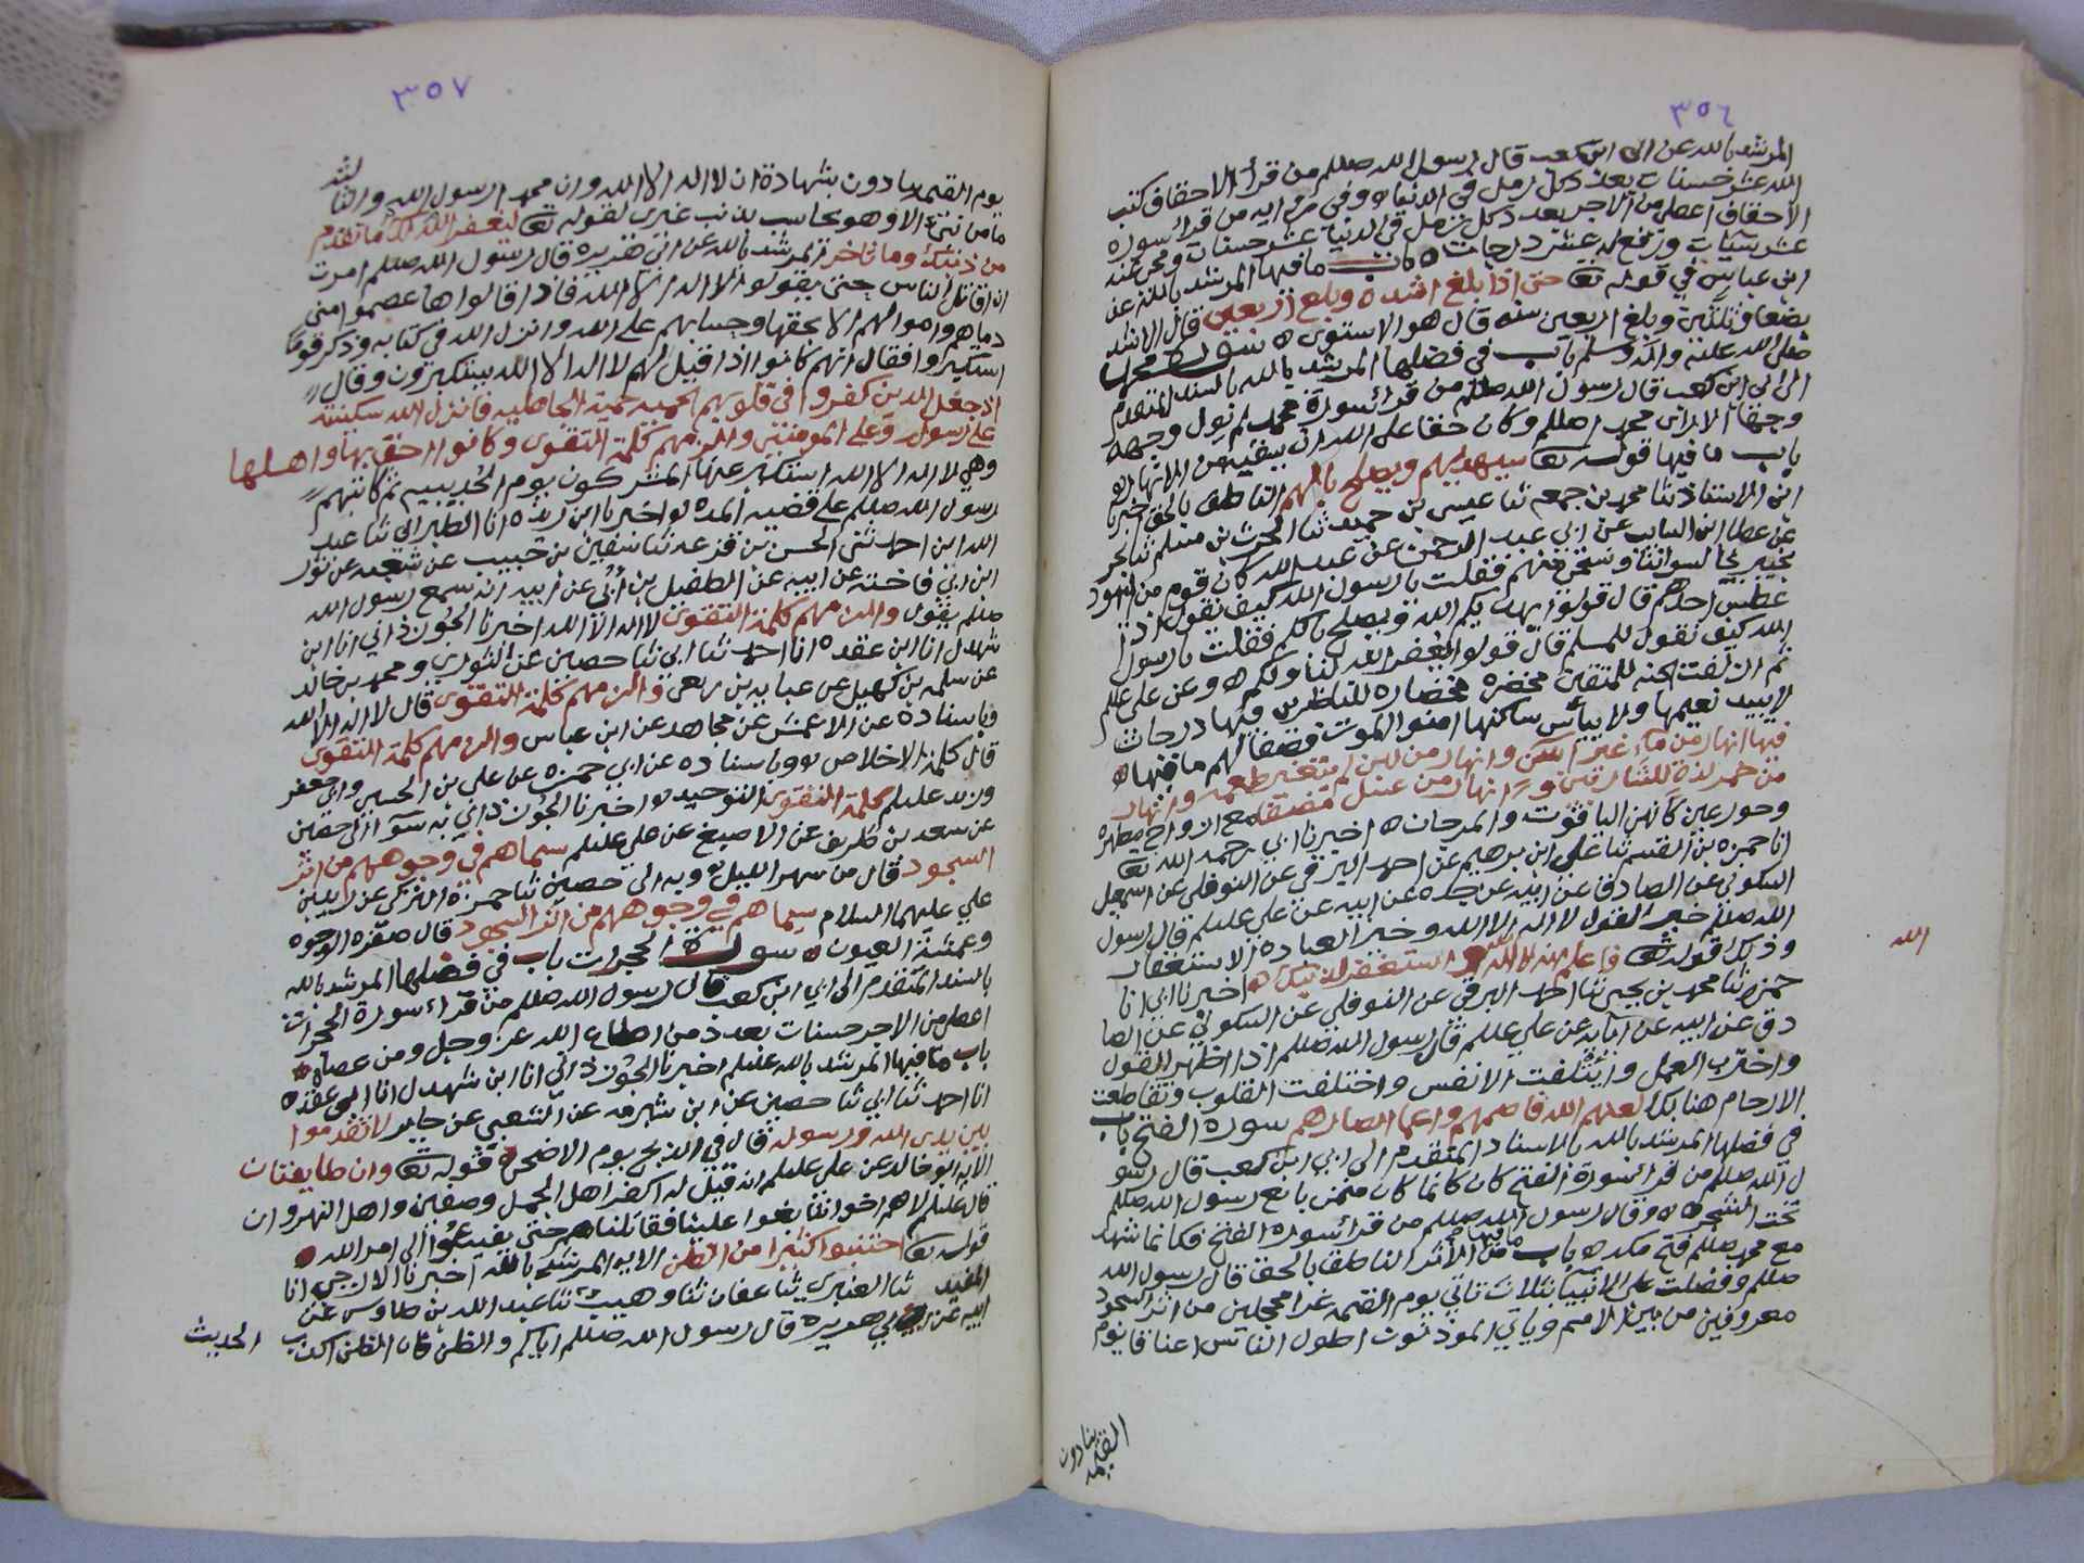 ٣٥٦
المرشد بالله عن ابى ابن كعب قال رسول الله صللم من قرأ الاحقاف كتب
الله عشر حسنات بعدد كل رمل في الدنيا ه وفي مرم ايه من قرأ سورة
الاحقاف اعطى من الاجر بعدد كل رمل في الدنيا عشر حسنات ومحى عنه
عشر سيئات ورفع له عشر درجات ه باب ما فيها المرشد بالله عن
ابن عباس في قوله تعا حتى اذا بلغ اشده وبلغ اربعين قال الاشد
بضعا وثلثين وبلغ اربعين سنه قال هو الاستوى ه سورة محمد
صلى الله عليه واله وسلم باب في فضلها المرشد بالله بالسند المتقدم
الى ابى ابن كعب قال رسول الله صللم من قرأ سورة محمد لم يول وجهه
وجها الا راى محمد اصللم وكان حقا على الله ان يسقيه من انهار
باب ما فيها قوله تعا سيهديهم ويصلح بالهم الناطق بالحق اخبرنا
ابن الاستاذ ثنا محمد بن جمعه ثنا عيسى بن حميد ثنا الحرث بن مسلم ثنا بحر
عن عطا ابن السايب عن ابي عبد الرحمن عن عبد الله كان قوم من اليهود
اذا عطس احدهم قال قولوا يهديكم الله ويصلح بالكم فقلت يا رسول
الله كيف نقول للمسلم قال قولوا يغفر الله لنا ولكم ه وعن علي عللم
ثم ازلفت الجنه للمتقين مخضره مخضاره للناظرين فيها درجات
لا يبيد نعيمها ولا ييأس ساكنها امنوا الموت فصفا لهم ما فيها ه
فيها انهار من ماء غير اسن وانهار من لبن لم يتغير طعمه وانهار
من خمر لذة للشاربين وانهار من عسل مصفى مع ازواج مطهره
وحور عين كانهن الياقوت والمرجان ه اخبرنا ابي رحمه الله تعا
انا حمزه بن القسم ثنا علي ابن ابرهيم عن احمد البرقي عن النوفلي عن اسمعيل
السكوني عن الصادق عن ابيه عن جده عن ابيه عن علي عليلم قال رسول
الله صللم خير القول لا اله الا الله وخير العبادة الاستغفار
وذلك قوله تعا فاعلم انه لا اله الا الله واستغفر لذنبك ه اخبرنا ابي انا
الله
حمزه ثنا محمد بن يحيى ثنا احمد البرقي عن النوفلي عن السكوني عن الصا
دق عن ابيه عن ابايه عن علي عللم قال رسول الله صللم اذا اظهر القول
واخترب العمل وائتلفت الانفس واختلفت القلوب وتقاطعت
الارحام هنالك لعنهم الله فاصمهم واعما ابصارهم سورة الفتح باب
في فضلها المرشد بالله بالاسناد المتقدم الى ابي ابن كعب قال رسو
ل الله صللم من قرأ سورة الفتح كان كانما كان ممن بايع رسول الله صللم
تحت الشجره ه وقال رسول الله صللم من قرأ سورة الفتح فكانما شهد
مع محمد صللم فتح مكه ه باب ما فيها من الاثر الناطق بالحق قال رسول الله
صللم وفضلت على الانبيا بثلاث تاتي يوم القيمه غرا محجلين من اثر السجود
معروفين من بين الامم وياتي الموذنون اطول الناس اعناقا يوم
القيمه ينادون
٣٥٧
يوم القيمه ينادون بشهادة ان لا اله الا الله وان محمد ارسول الله والثا لثه
ما من نبيء الا وهو يحاسب بذنب غيرى لقوله تعا ليغفر الله لك ما تقدم
من ذنبك وما تاخر ه المرشد بالله عن ابي هريره قال رسول الله صللم امرت
ان اقاتل الناس حتى يقولوا لا اله الا الله فاذا قالوها عصموا مني
دماهم واموالهم الا بحقها وحسابهم على الله وانزل الله في كتابه وذكر قوما
استكبروا فقال انهم كانوا اذا قيل لهم لا اله الا الله يستكبرون وقال
اذ جعل الذين كفروا في قلوبهم الحميه حمية الجاهليه فانزل الله سكينته
على رسوله وعلى المومنين والزمهم كلمة التقوى وكانوا احق بها واهلها
وهي لا اله الا الله استكبر عنها المشركون يوم الحديبيه ثم كاتبهم
رسول الله صللم على قضيه المده ه اخبرنا ابن ريذه انا الطبراني ثنا عبد
الله ابن احمد ثنى الحسن بن قزعه ثنا سفين بن حبيب عن شعبه عن ثور
ابن ابي فاخته عن ابيه عن الطفيل بن أُبي عن ابيه انه سمع رسول الله
صللم يقول والزمهم كلمة التقوى لا اله الا الله اخبرنا الجوزذاني انا ابن
شهدل انا ابن عقده انا احمد ثنا ابي ثنا حصين عن الثوري ومحمد بن خالد
عن سلمه بن كهيل عن عبايه بن ربعي والزمهم كلمة التقوى قال لا اله الا الله
وباسناده عن الاعمش عن مجاهد عن ابن عباس والزمهم كلمة التقوى
قال كلمة الاخلاص ه وباسناده عن ابي حمزه عن علي بن الحسين وابي جعفر
وزيد عليلم كلمة التقوى التوحيد ه اخبرنا الجوزذاني به سوا الى حصين
عن سعد بن طريف عن الاصبغ عن علي عليلم سيماهم في وجوههم من اثر
السجود قال من سهر الليل ه وبه الى حصين ثنا حمزه التركي عن زيد بن
علي عليهما السلام سيماهم في وجوههم من اثر السجود قال صفره الوجوه
وعمشة العيون ه سورة الحجرات باب في فضلها المرشد بالله
بالسند المتقدم الى ابي ابن كعب قال رسول الله صللم من قرأ سورة الحجرات
اعطي من الاجر حسنات بعدد من اطاع الله عز وجل ومن عصاه ه
باب ما فيها المرشد بالله عليلم اخبرنا الجوزذاني انا ابن شهدل انا ابن عقده
انا احمد ثنا ابي ثنا حصين عن ابن شبرمه عن الشعبي عن جابر لا تقدموا
بين يدى الله ورسوله قال في الذبح يوم الاضحى ه قوله تعا وان طايفتان
الايه ابو خالد عن علي عليلم انه قيل له اكفر اهل الجمل وصفين واهل النهروان
قال عليلم لا هم اخواننا بغوا علينا فقاتلناهم حتى يفيئوا الى امر الله ه
قوله تعا اجتنبوا كثيرا من الظن الايه المرشد بالله اخبرنا الازجي انا
المفيد ثنا العنبري ثنا عفان ثنا وهيب ثنا عبد الله بن طاوس عن
ابيه عن ابي هريره قال رسول الله صللم اياكم والظن فان الظن اكذب الحديث